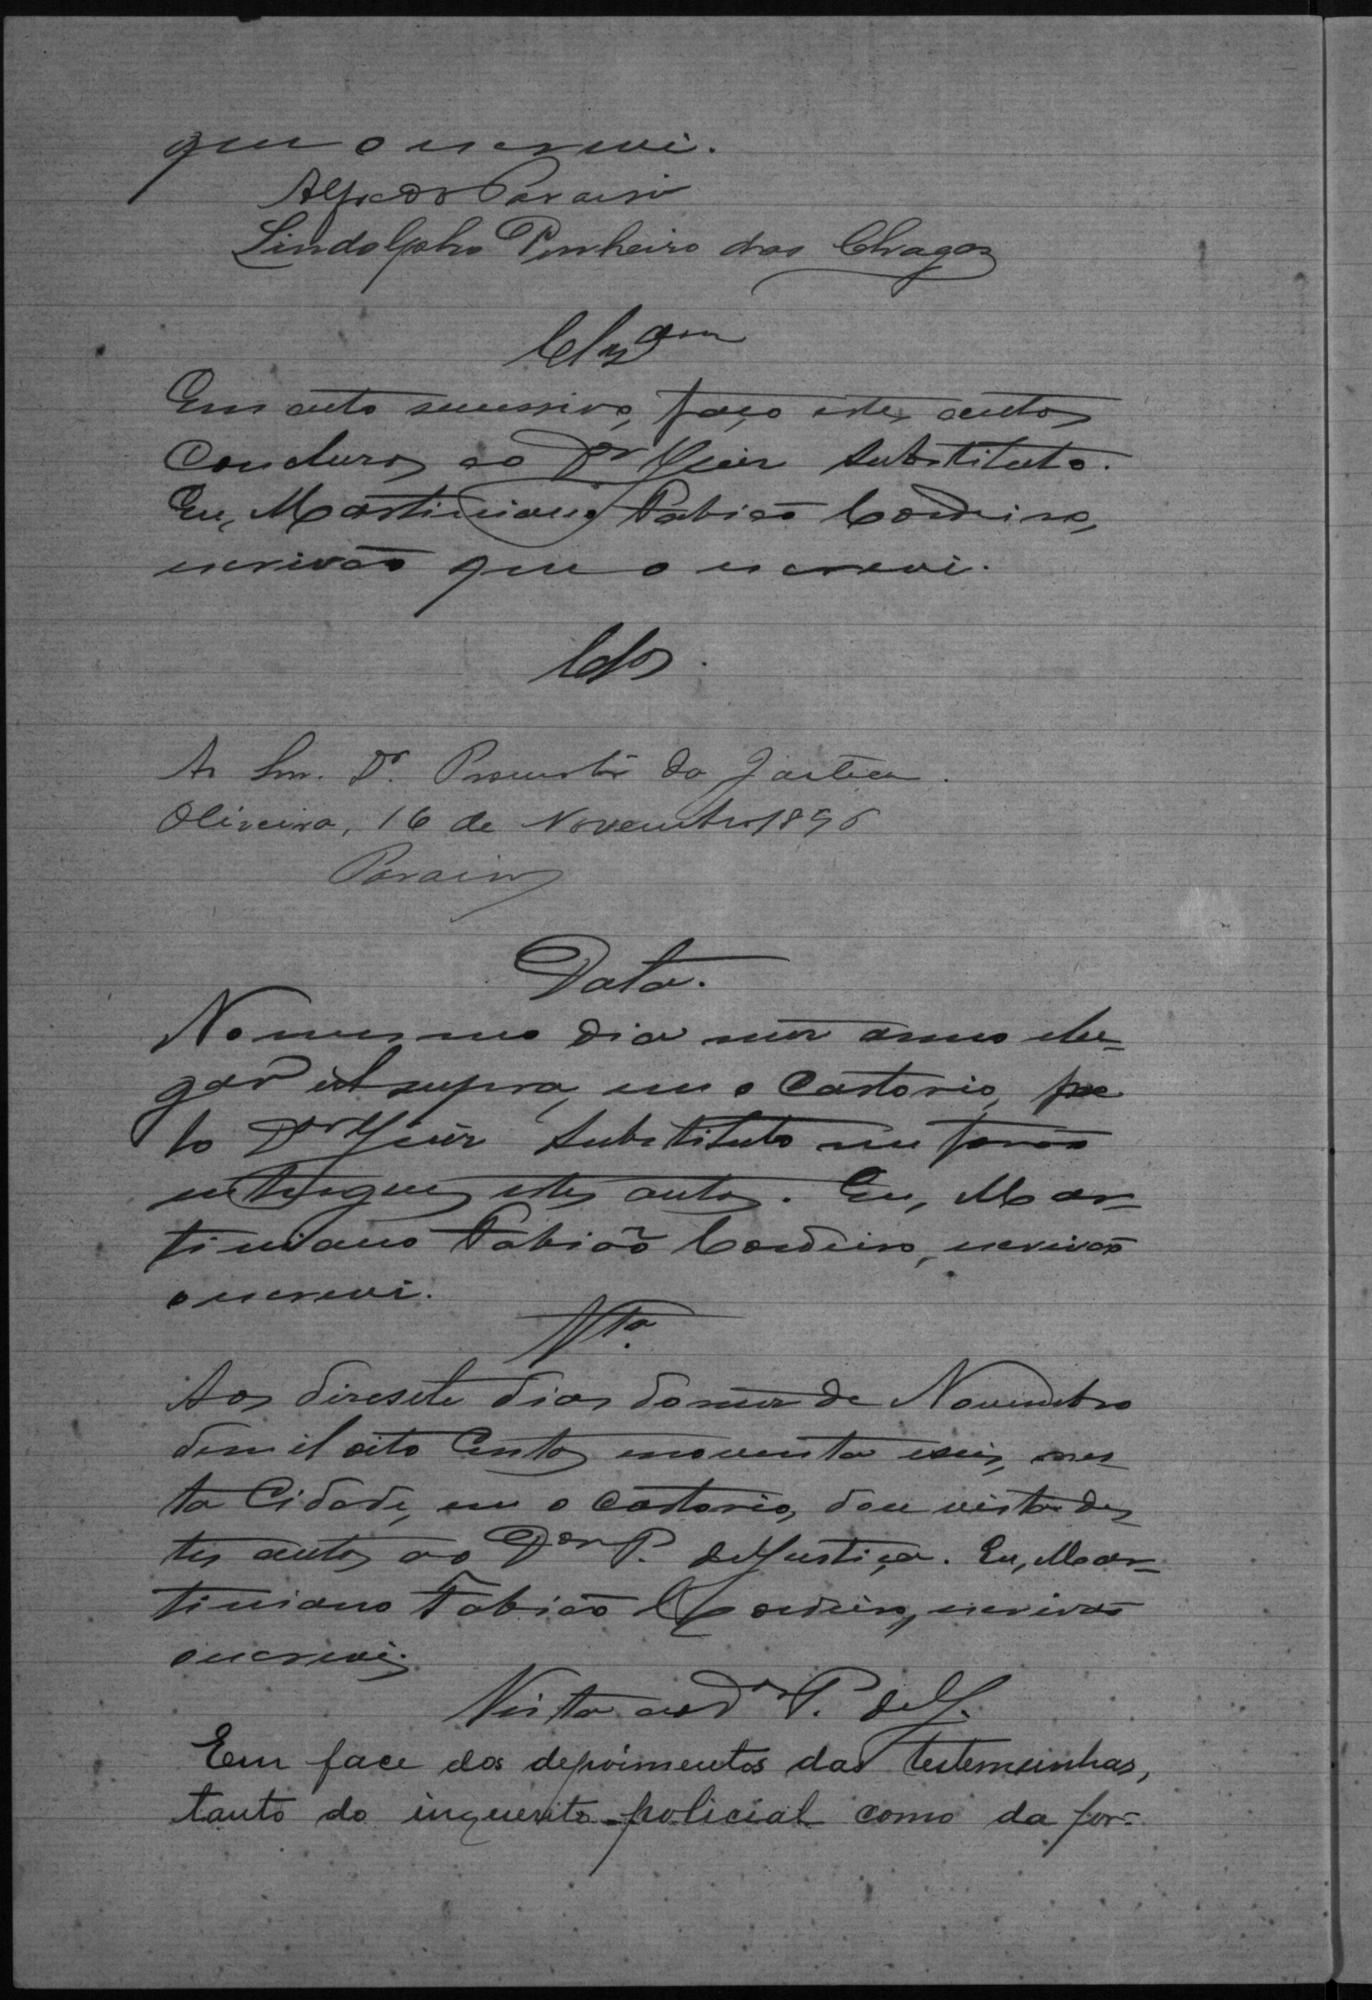 que o escrevi.
Alfredo Paraiso
Lindolpho Pinheiro das Chagas
Clzam
Em acto sucessivo, faço estes autos
Concluzos ao Dr Juiz Substituto.
Eu, Martiniano Fabião Cordeiro,
escrivão que o escrevi.
Clos.
Ao Snr. Dr. Promotor da Justiça.
Oliveira, 16 de Novembro 1896
Paraiso
Data.
No mesmo dia mez anno e lu-
gar ut supra, em o Cartorio, pe
lo Dor Juiz Substituto me forão
entregues estes autos. Eu, Mar-
tiniano Fabião Cordeiro, escrivão
o escrevi.
Vta.
Aos dizesete dias do mez de Novembro
de mil oito Centos e noventa e seis, nes-
ta Cidade, em o Cartorio, dou vista des-
tes autos ao Dor P. de Justiça. Eu, Mar-
tiniano Fabião Cordeiro, escrivão
o escrevi.
Vista ao Dor P. de J.
Em face dos depoimentos das testemunhas,
tanto do inquerito policial como da for-